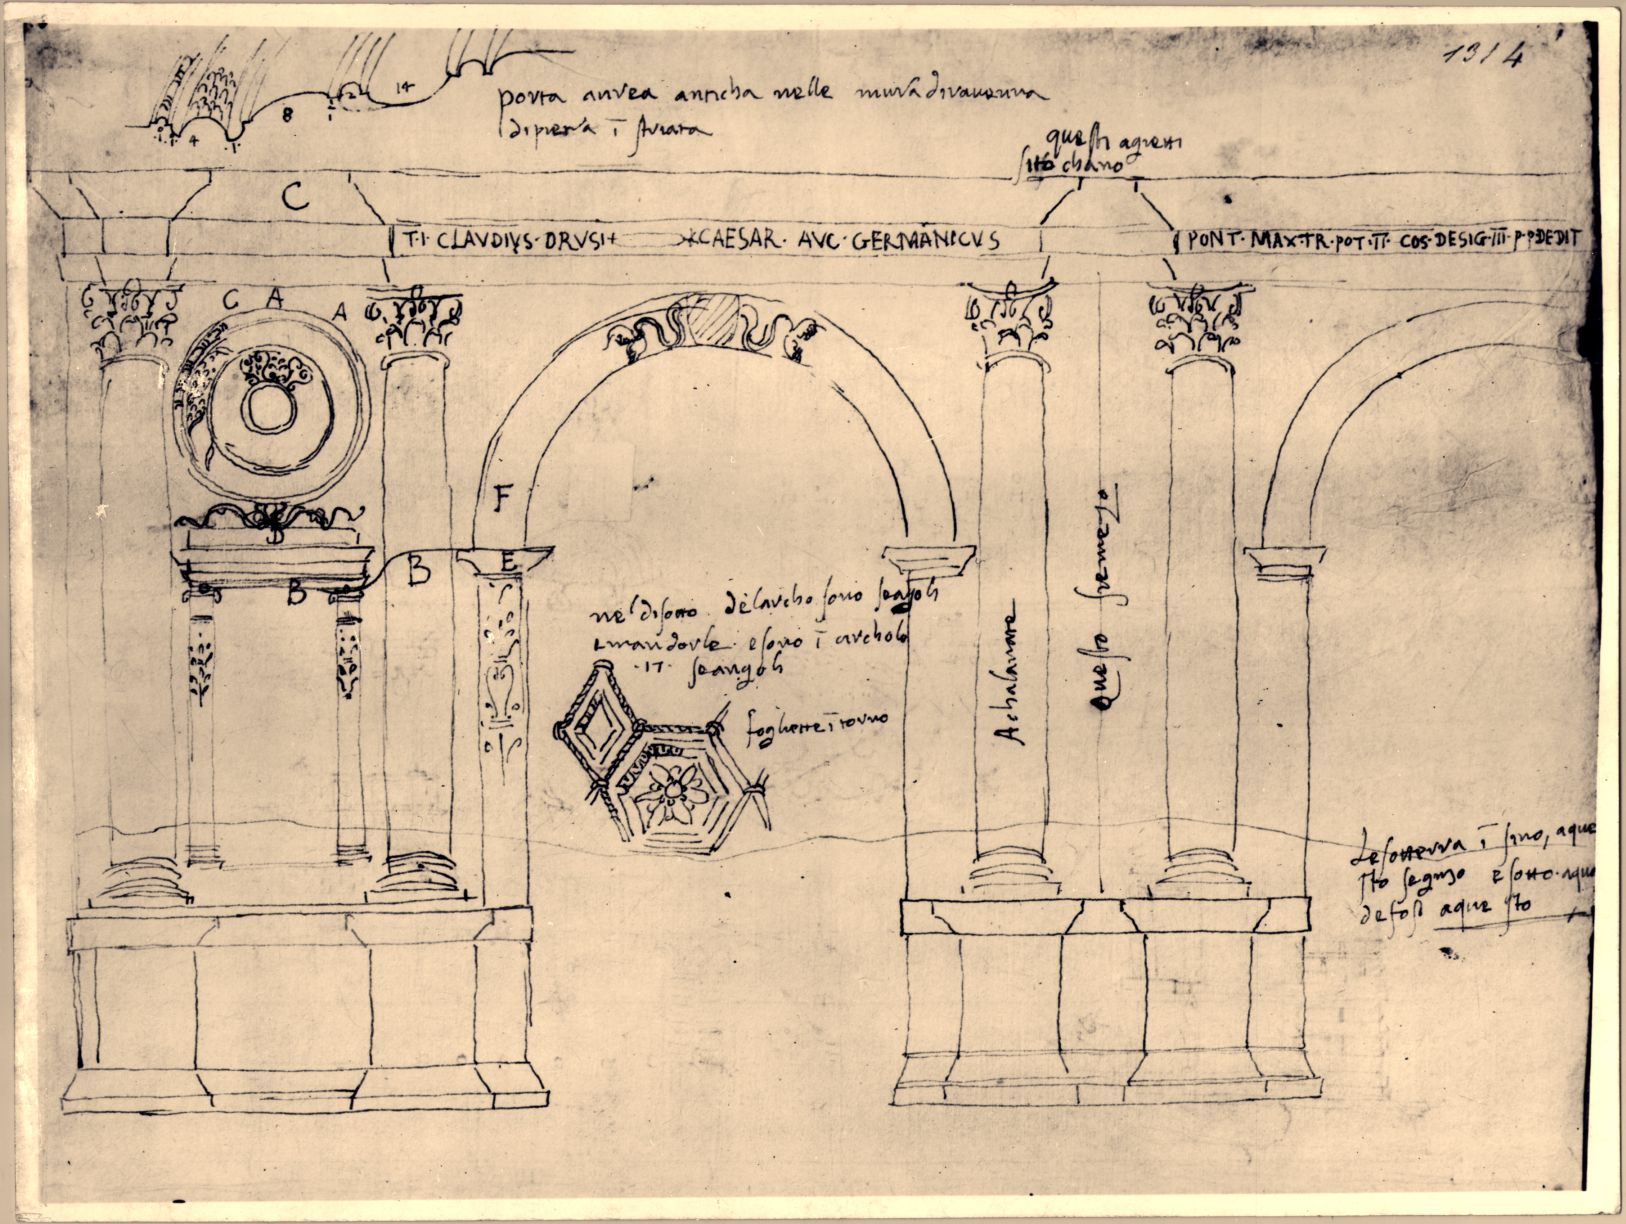 1314
14
8
2
4
porta aurea anticha nelle mura diravenna
dipietra ī striata
questi agietti
si tochano
C
T·I· CLAVDIVS·DRVSI+ CAESAR· AVC·GERMANICVS
PONT·MAX·TR·POT·II· COS·DESIG·III·P·PDEDIT
C A A
F
B
B B E
nel disotto delarcho sono seagoli
emandorle esono ī archolo
·17· seangoli
fogliette ītorno
Achalanare
questo
Lesotterra ī sino, aque
sto segnio e sotto aque
aque sto